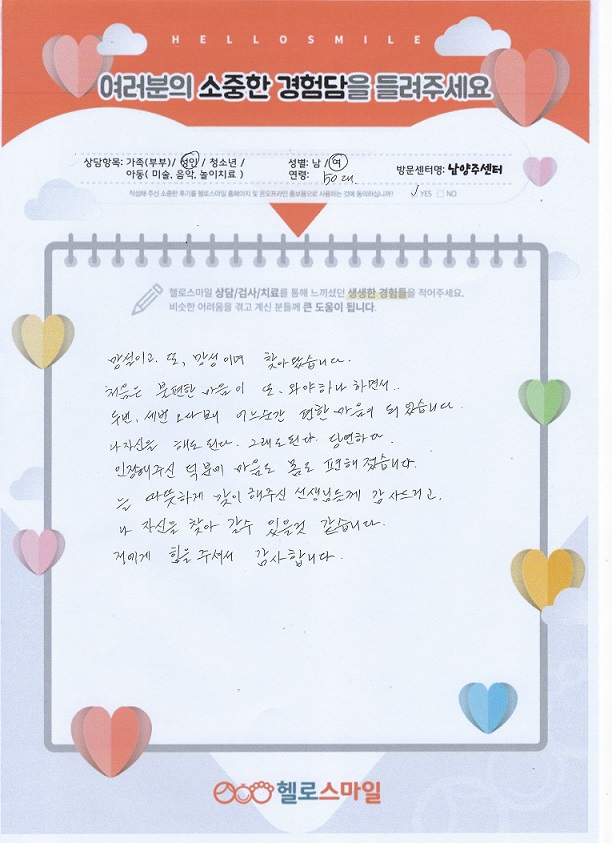 HELLOSMILE
여러분의 소중한 경험담을 들려주세요
상담항목: 가족(부부)/ 성인 / 청소년 / 성별: 남 / 여 방문센터명: 남양주센터
아동( 미술, 음악, 놀이치료 ) 연령: 50대.
작성해 주신 소중한 후기를 헬로스마일 홈페이지 및 온오프라인 홍보용으로 사용하는 것에 동의하십니까? ✓ YES □ NO
헬로스마일 상담/검사/치료를 통해 느끼셨던 생생한 경험들을 적어주세요.
비슷한 어려움을 겪고 계신 분들께 큰 도움이 됩니다.
망설이고, 또, 망성이며 찾아왔습니다.
처음은 불편한 마음이 또, 와야하나 하면서..
두번, 세번 오다보니 어느순간 편한 마음이 되었습니다.
나자신을 해도된다. 그래도된다. 당연하다.
인정해주신 덕분에 마음도 몸도 편해졌습니다.
늘 따뜻하게 같이 해주신 선생님들께 감사드리고,
나 자신을 찾아 갈수 있을것 같습니다.
저에게 힘을 주셔서 감사합니다.
헬로스마일